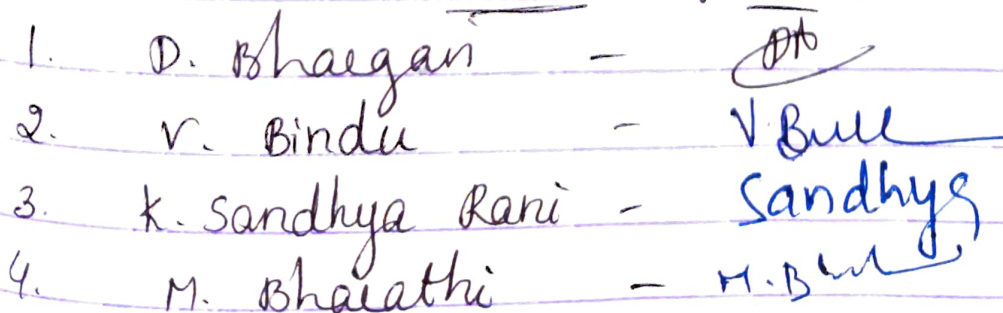 1. D. Bhargavi -
2. V. Bindu - V. Bull
3. K. Sandhya Rani - Sandhya
4. M. Bharathi - M. B